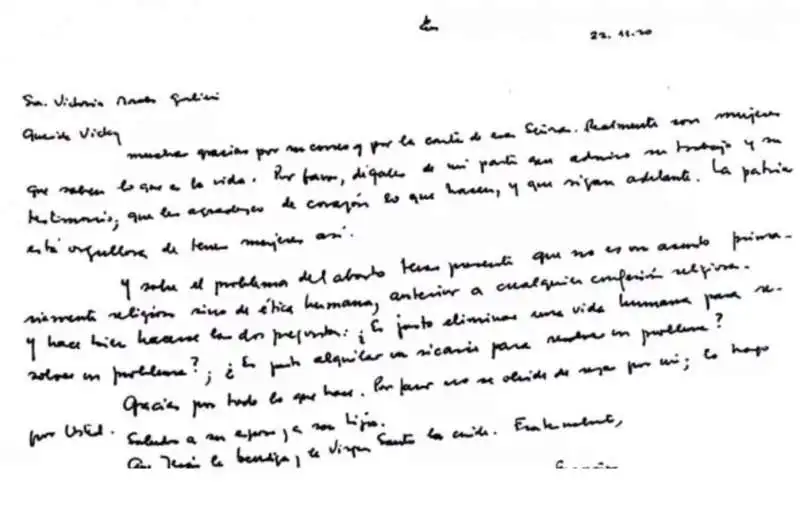 22.11.20
Sra. Victoria Morales Gorleri
Querida Vicky
muchas gracias por su correo y por la carta de esa Señora. Realmente son mujeres
que saben lo que es la vida. Por favor, dígales de mi parte que admiro su trabajo y su
testimonio; que les agradezco de corazón lo que hacen, y que sigan adelante. La patria
está orgullosa de tener mujeres así.
Y sobre el problema del aborto tener presente que no es un asunto prima-
riamente religioso sino de ética humana, anterior a cualquier confesión religiosa.
Y hace bien hacerse las dos preguntas: ¿Es justo eliminar una vida humana para re-
solver un problema?; ¿Es justo alquilar un sicario para resolver un problema?
Gracias por todo lo que hace. Por favor no se olvide de rezar por mí; lo hago
por Usted. Saludos a su esposo y a sus hijos.
Que Jesús la bendiga y la Virgen Santa la cuide. Fraternalmente,